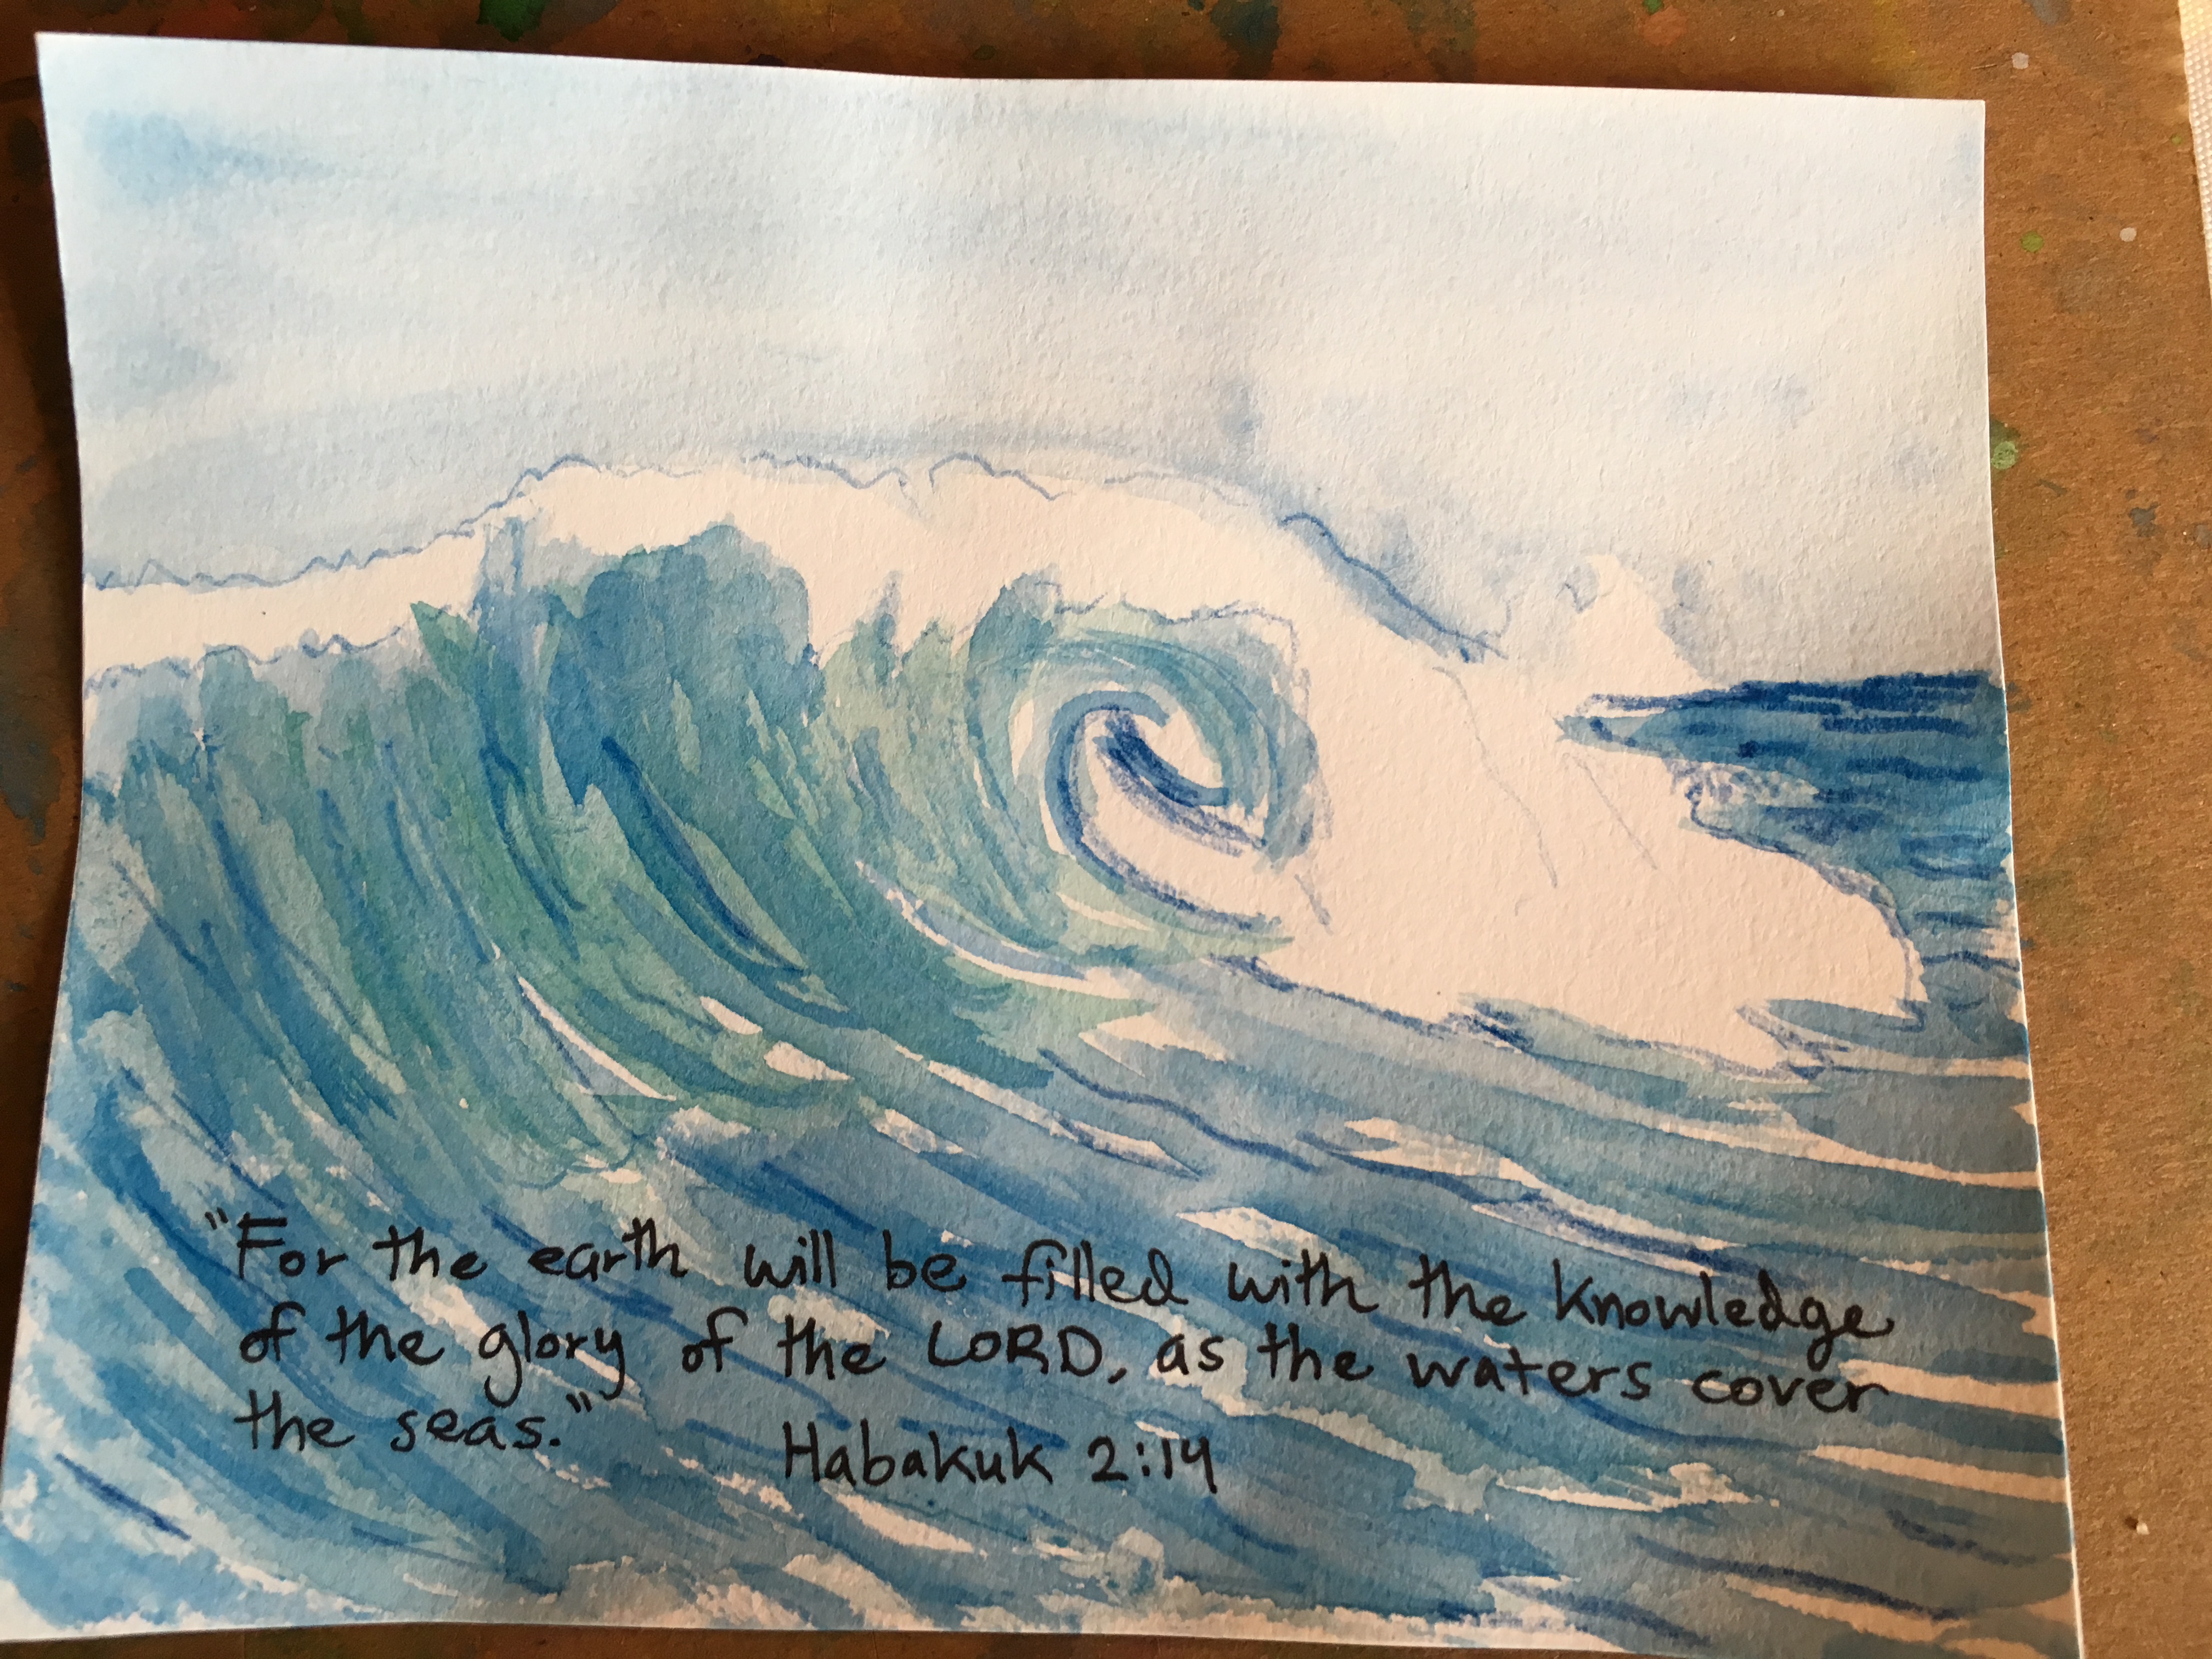 "For the earth will be filled with the knowledge
of the glory of the LORD, as the waters cover
the seas."
Habakuk 2:14